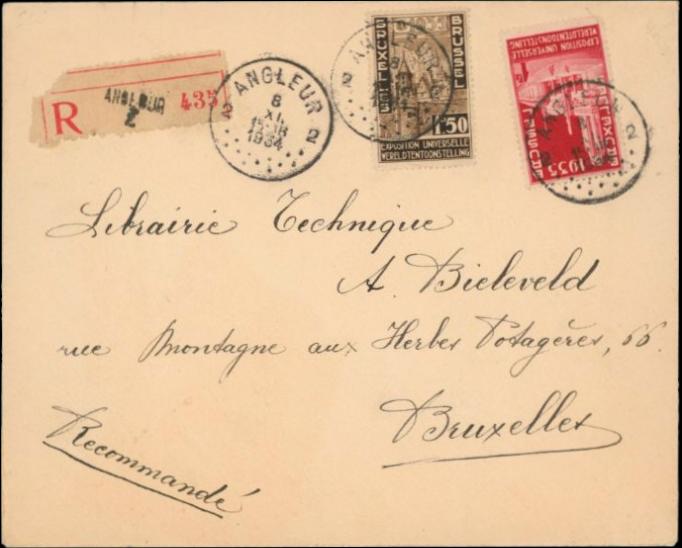 R
ANGLEUR
2
435
ANGLEUR
2 2
8
XI
1934
BRUXELLES
BRUSSEL
1F50
EXPOSITION UNIVERSELLE
WERELDTENTOONSTELLING
ANGLEUR
2
8
EXPOSITION UNIVERSELLE
WERELDTENTOONSTELLING
1935
ANGLEUR
2
Librairie Technique
A. Bieleveld
rue Montagne aux Herbes Potagères, 66.
Bruxelles
Recommandé